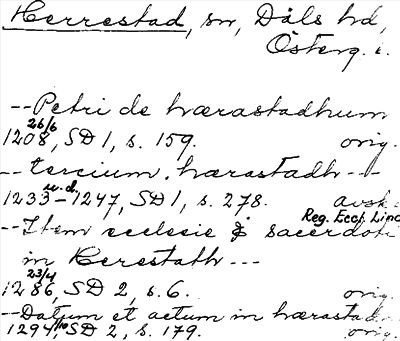 Herrestad, sn, Dals hd,
Österg. l.
-- Petri de hærastadhum
26/6
1208, SD 1, s. 159. orig.
-- tercium. hærastadh --
u.d.
1233 - 1247, SD 1, s. 278. avskr.
Reg. Eccl. Linc
-- Item ecclesie & sacerdoti
in Herestath ---
23/4
1286, SD 2, s. 6. orig.
-- Datum et actum in hærastad
1294, SD 2, s. 179. orig.